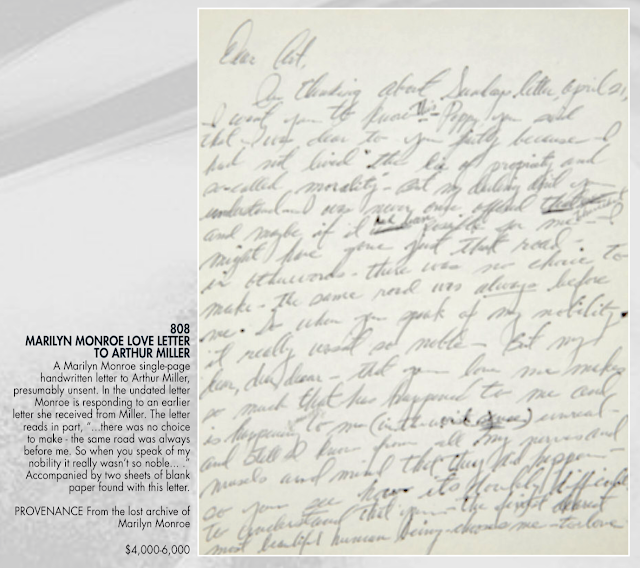 808
MARILYN MONROE LOVE LETTER
TO ARTHUR MILLER
A Marilyn Monroe single-page
handwritten letter to Arthur Miller,
presumably unsent. In the undated letter
Monroe is responding to an earlier
letter she received from Miller. The letter
reads in part, “...there was no choice
to make - the same road was always
before me. So when you speak of my
nobility it really wasn't so noble... .”
Accompanied by two sheets of blank
paper found with this letter.
PROVENANCE From the lost archive of
Marilyn Monroe
$4,000-6,000
Dear Art,
In thinking about Sundays letter, april 21,
I want you to know this - Poppy you said
that I was dear to you partly because I
had not lived "the lie of propriety and
so-called morality" - But my darling don't you
understand I was never once offered
and maybe if it possible for me - I
might have gone just that road -
in otherwords - there was no choice to
make - the same road was always before
me. So when you speak of my nobility
it really wasn't so noble - But my
dear, dear, dear - that you love me makes
so much that has happened to me and
is happening to me (in the ) unreal -
and still I know from all my nerves and
mussels and mind that they did happen -
so you see how its horribly difficult
to understand that you - the finest dearest
most beautiful human being - chooses me - to love